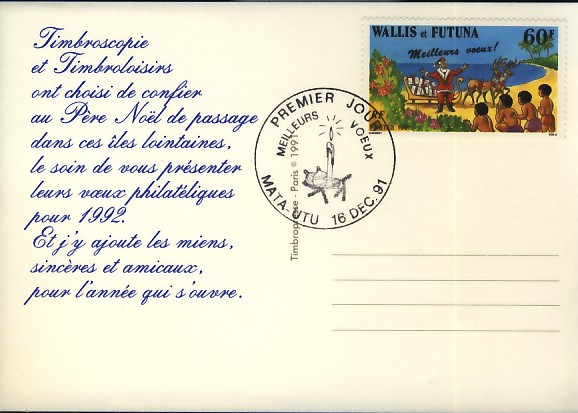 Timbroscopie
et Timbroloisirs
ont choisi de confier
au Père Noël de passage
dans ces îles lointaines,
le soin de vous présenter
leurs vœux philatéliques
pour 1992.
Et j'y ajoute les miens,
sincères et amicaux,
pour l'année qui s'ouvre.
WALLIS et FUTUNA 60F
Meilleurs voeux!
RF
PREMIER JOUR
MEILLEURS VOEUX
MATA-UTU 16 DEC. 91
Paris © 1991